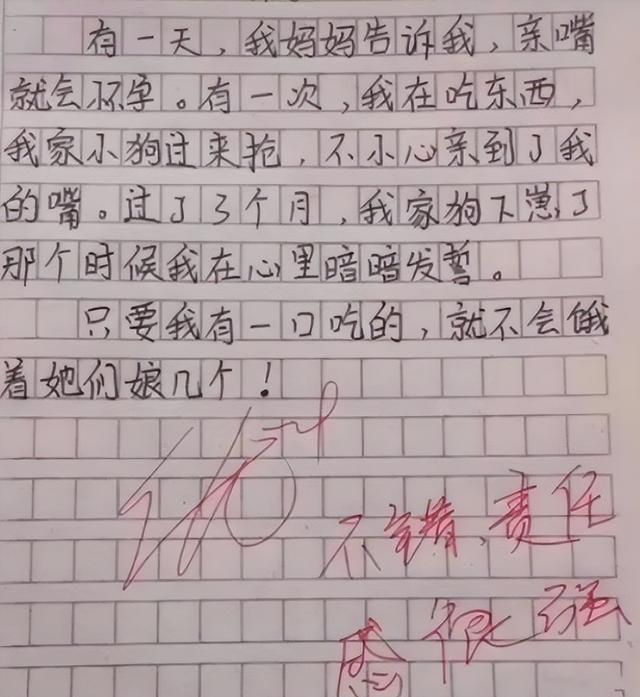 有一天，我妈妈告诉我，亲嘴
就会怀孕。有一次，我在吃东西，
我家小狗过来抢，不小心亲到了我
的嘴。过了3个月，我家狗下崽了
那个时候我在心里暗暗发誓。
只要我有一口吃的，就不会饿
着她们娘几个！
不错，责任
感很强